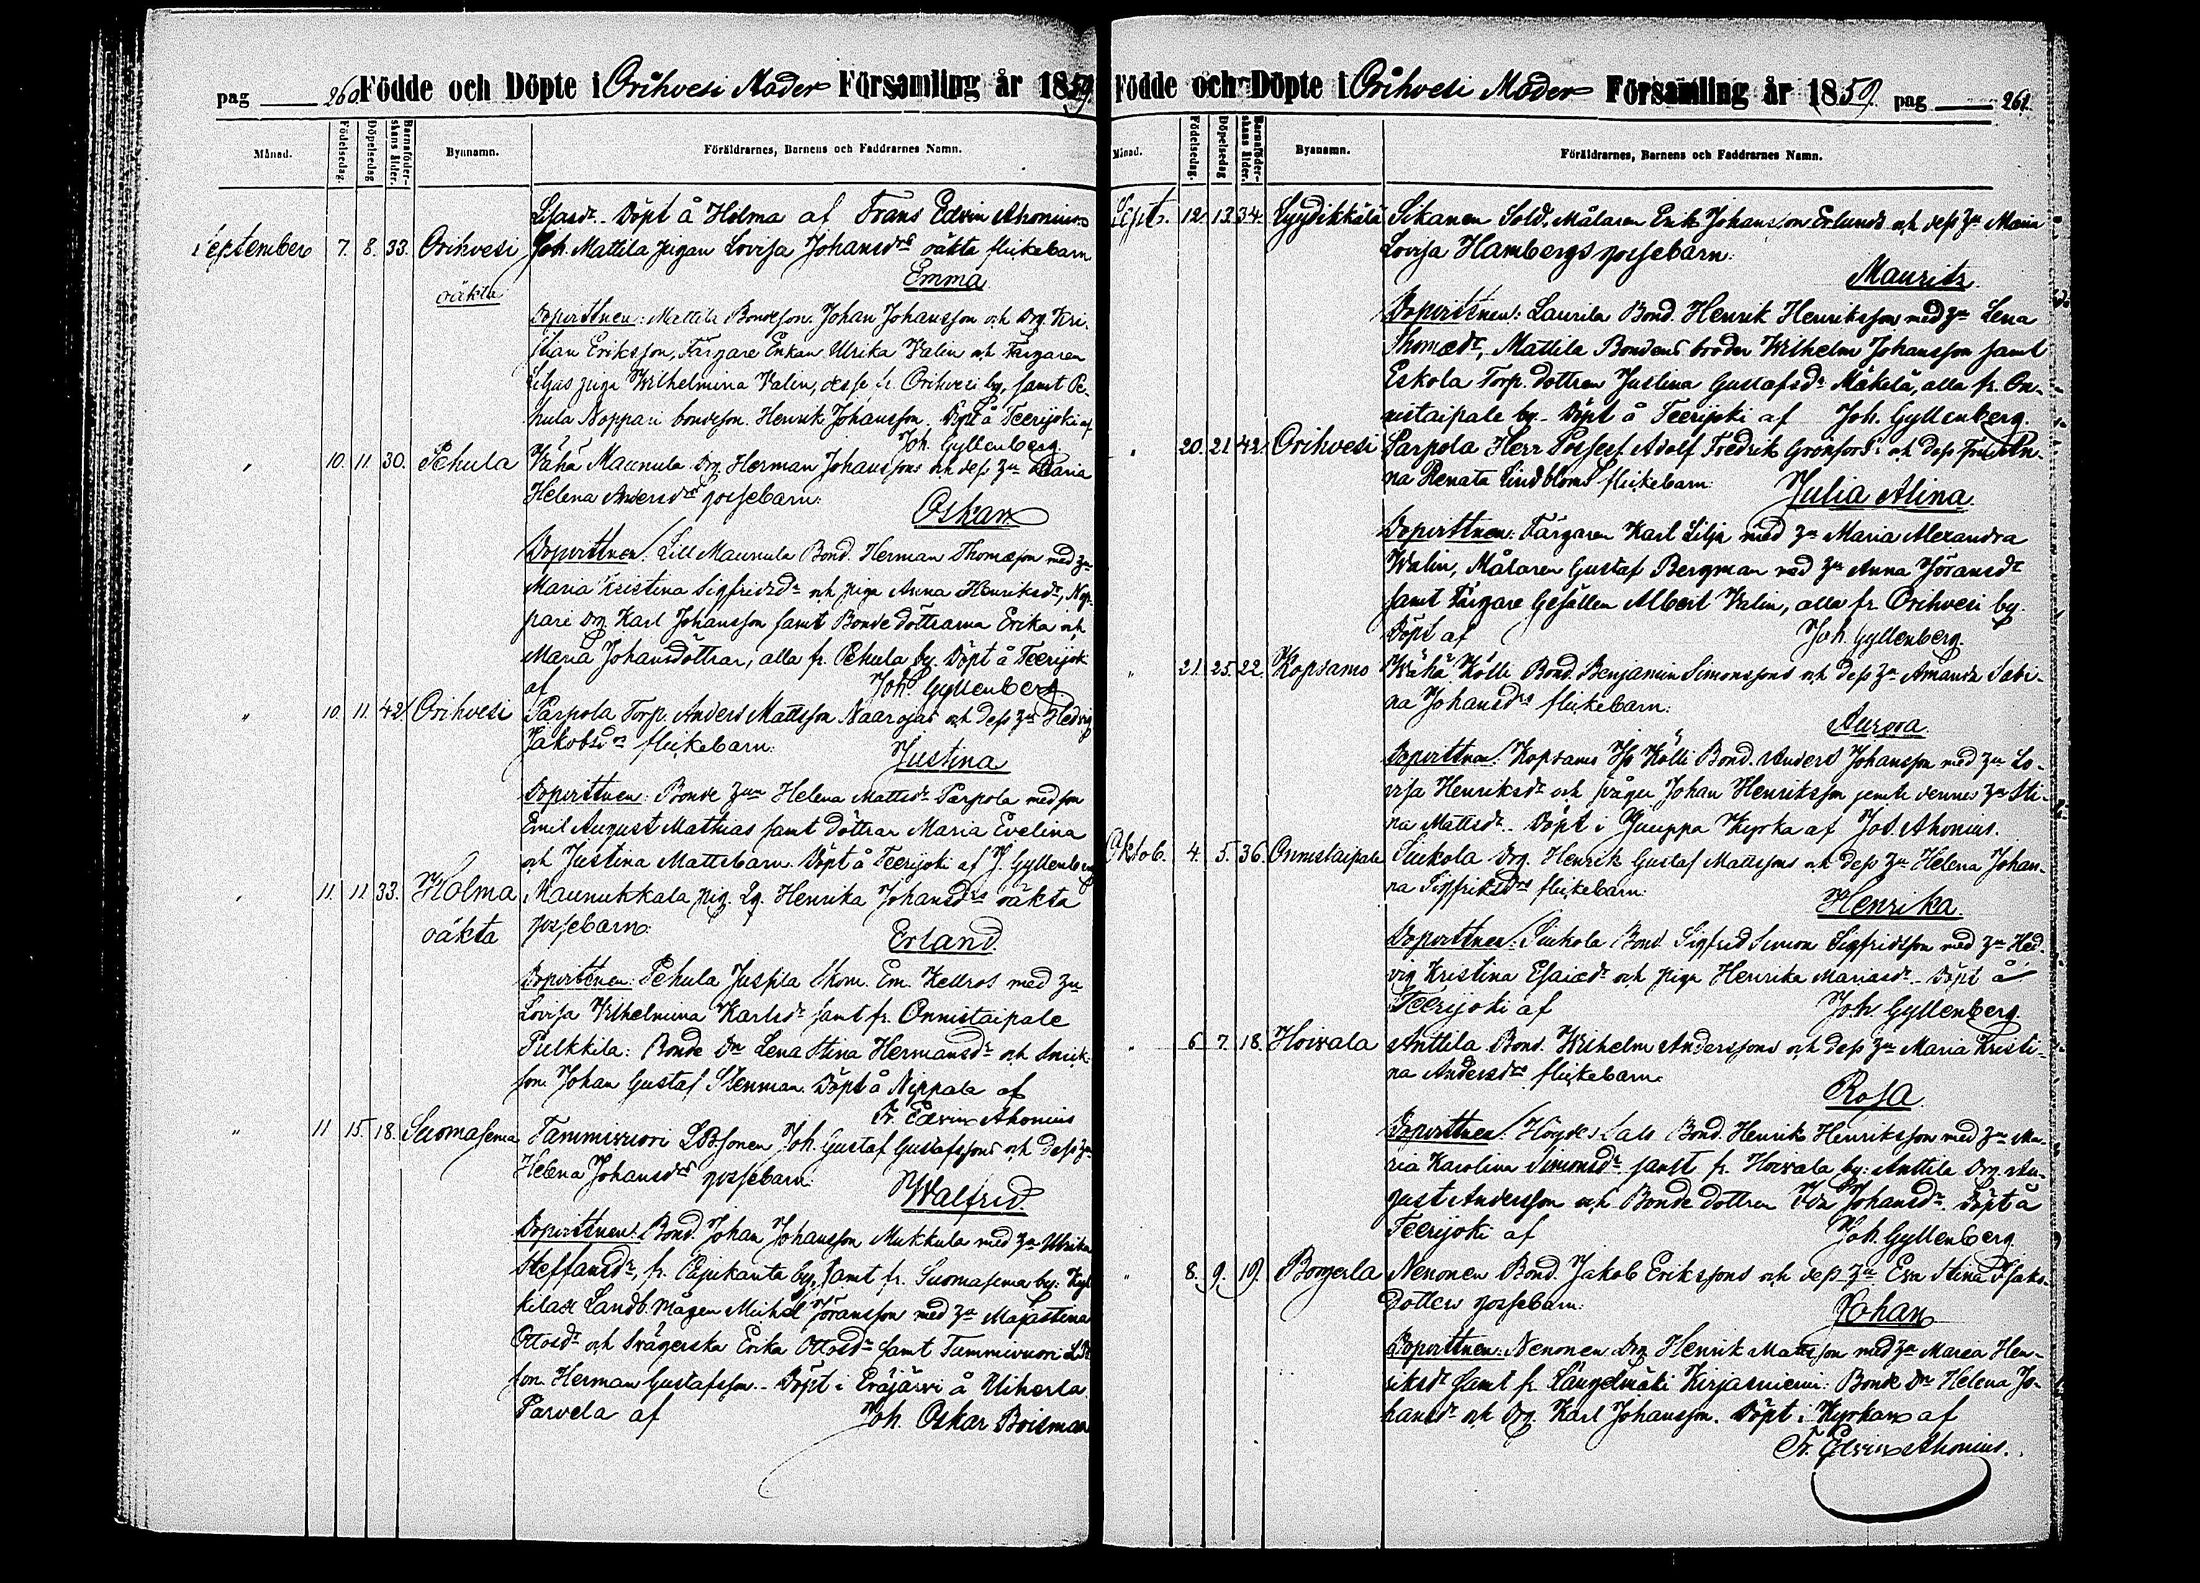 pag 260. Födde och Döpte i Orihvesi Moder Församling år 1859.
Månad. Födelsedag. Döpelsedag Barnaföderskans ålder. Bynamn. Föräldrarnes, Barnens och Faddrarnes Namn.
Döpt å Holma af Frans Edvin Ahonius
September 7. 8. 33. Orihvesi Joh. Mattila pigan Lovisa Johansdrs oäkta flickebarn
oäkta Emma
Dopvittnen: Mattila Bondeson Johan Johansson och Drg. Kri-
stian Eriksson, Färgare Enkan Ulrika Valin och Färgaren
Liljas piga Wilhelmina Valin, desse fr. Orihvesi by, samt Pe-
hula Noppari bondeson Henrik Johansson. Döpt å Teerijoki af
Joh. Gyllenberg
" 10. 11 30. Pehula Vähä Maunula Drg. Herman Johanssons och dess hu Maria
Helena Andersdrs gossebarn:
Oskar
Dopvittnen: Lill Maunula Bond. Herman Thomasson med hu
Maria Kristina Sigfridsdr och piga Anna Henriksdr, Nop-
pari Drg. Karl Johansson samt Bonde döttrarna Erika och
Maria Johansdöttrar, alla fr. Pehula by. Döpt å Teerijoki
af Joh. Gyllenberg
" 10. 11. 42 Orihvesi Parpola Torp. Anders Mattsson Naarojas och dess hu Hedvig
Jakobsdrs flickebarn:
Justina
Dopvittnen: Bonde hun Helena Mattsdr Parpola med son
Emil August Mathias samt döttrar Maria Evelina
och Justina Mattsbarn. Döpt å Teerijoki af J. Gyllenberg
" 11. 11 33. Holma Maunukkala pig. Henrika Johansdrs oäkta
oäkta gossebarn:
Erland.
Dopvittnen: Pehula Jussila Skom. Em. Kellros med hu
Lovisa Wilhelmina Karlsdr samt fr. Onnistaipale
Pulkkila: Bonde Dn Lena Stina Hermansdr och
son Johan Gustaf Stenman. Döpt å Nippala af
Fr. Edvin Ahonius
" 11 15. 18. Suomasema Tammivuori Joh. Gustaf Gustafssons och dess hu
Helena Johansdrs gossebarn:
Walfrid.
Dopvittnen: Bond. Johan Johansson Mukkula med hu Ulrika
Steffansdr, fr. by, samt fr. Suomasema by:
Landb. mågen Michel Jöransson med hu Majastina
Ottosdr och Svägerska Erika Ottosdr samt Tammivuori
son Herman Gustafsson. Döpt i Eräjärvi å Uiherla
Parvela af Joh. Oskar Boisman
Födde och Döpte i Orihvesi Moder Församling år 1859. pag 261.
Månad. Födelsedag. Döpelsedag Barnaföderskans ålder. Bynamn. Föräldrarnes, Barnens och Faddrarnes Namn.
Sept. 12. 13. 34. Syydikkälä Sikanen Sold. Målaren Erik Johansson Erlunds och dess hu Maria
Lovisa Hambergs gossebarn:
Mauritz.
Dopvittnen: Laurila Bond. Henrik Henriksson med hu Lena
Thomædr, Mattila Bondens broder Wilhelm Johansson samt
Eskola Torp. dottren Justina Gustafsdr Mäkelä, alla fr. On-
nistaipale by. Döpt å Teerijoki af Joh. Gyllenberg.
" 20. 21. 42. Orihvesi Parpola Herr Possess. Adolf Fredrik Grönfors' och dess Fru An-
na Renata Lindbloms flickebarn:
Julia Alina
Dopvittnen: Färgaren Karl Lilja med hu Maria Alexandra
Walin, Målaren Gustaf Bergman med hu Anna Jöransdr
samt Färgare Gesällen Albert Valin, alla fr. Orihvesi by.
Döpt af Joh. Gyllenberg.
" 21. 25. 22. Kopsamo Wähä Kölli Bond. Benjamin Simonssons och dess hu Amanda Sabi-
na Johansdrs flickebarn:
Aurora.
Dopvittnen: Kopsamo Iso Kölli Bond. Anders Johansson med hu Lo-
visa Henriksdr och svåger Johan Henriksson jemte dennes hu Sti-
na Mattsdr. Döpt i Juuppa Kyrka af Jos. Ahonius.
Oktob. 4. 5. 36. Onnistaipale Siukola Drg. Henrik Gustaf Mattssons och dess hu Helena Johan-
na Sigfridsdrs flickebarn:
Henrika.
Dopvittnen: Siukola Bond. Sigfrid Simon Sigfridsson med hu Hed-
vig Kristina Esaiædr och piga Henrika Mariasdr. Döpt å
Teerijoki af Joh. Gyllenberg.
" 6. 7. 18. Hoivala Anttila Bond. Wilhelm Anderssons och dess hu Maria Kristi-
na Andersdrs flickebarn:
Rosa.
Dopvittnen: Bond. Henrik Henriksson med hu Ma-
ria Karolina Simonsdr samt fr. Hoivala by: Anttila Drg. Au-
gust Andersson och Bonde dottren Ida Johansdr. Döpt å
Teerijoki af Joh. Gyllenberg.
" 8. 9. 19. Bonjerla Nenonen Bond. Jakob Erikssons och dess hu Eva Stina Isaks-
dotters gossebarn:
Johan
Dopvittnen: Nenonen Drg. Henrik Mattsson med hu Maria Hen-
riksdr samt fr. Längelmäki Kirjasniemi: Bonde Dn Helena Jo-
hansdr och Drg. Karl Johansson. Döpt i Kyrkan af
Fr. Edvin Ahonius.